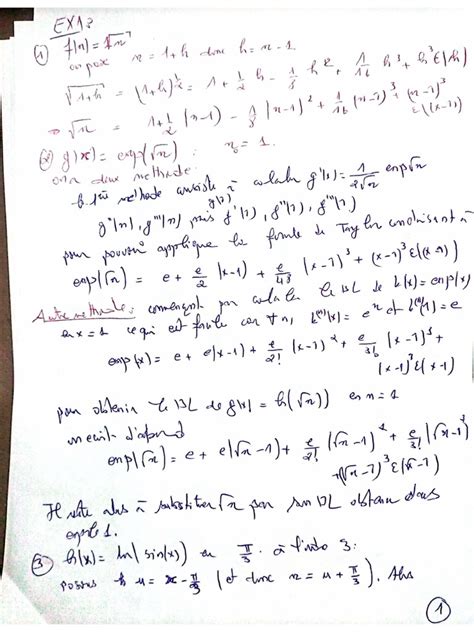 EX1:
① f(x) = √x
on pose x = 1+h donc h = x-1.
√1+h = (1+h)^½ = 1 + 1/2 h - 1/8 h² + 1/16 h³ + h³ε(h)
⇒ √x = 1 + 1/2 (x-1) - 1/8 (x-1)² + 1/16 (x-1)³ + (x-1)³ ε(x-1)
② g(x) = exp(√x) : x₀ = 1.
on a deux méthode:
la 1ère méthode consiste à calculer g'(x) = 1/2√x exp√x
g''(x), g'''(x) puis g(1), g'(1), g''(1), g'''(1)
pour pouvoir applique la formule de Taylor conduisant à
exp(√x) = e + e/2 (x-1) + e/48 (x-1)³ + (x-1)³ ε(x-1)
Autre méthode: commençant par calculer le DL de k(x) = exp(x)
en x = 1 ce qui est facile car ∀n, k⁽ⁿ⁾(x) = eˣ et k⁽ⁿ⁾(1) = e
exp(x) = e + e(x-1) + e/2! (x-1)² + e/3! (x-1)³ + (x-1)³ ε(x-1)
pour obtenir le DL de g(x) = h(√x) en x = 1
on écrit d'abord
exp(√x) = e + e(√x-1) + e/2! (√x-1)² + e/3! (√x-1)³ + (√x-1)³ ε(√x-1)
Il reste alors à substituer √x par son DL obtenu dans
③ h(x) = ln(sin(x)) en π/3 à l'ordre 3:
posons u = x - π/3 (et donc x = u + π/3). Alors
①